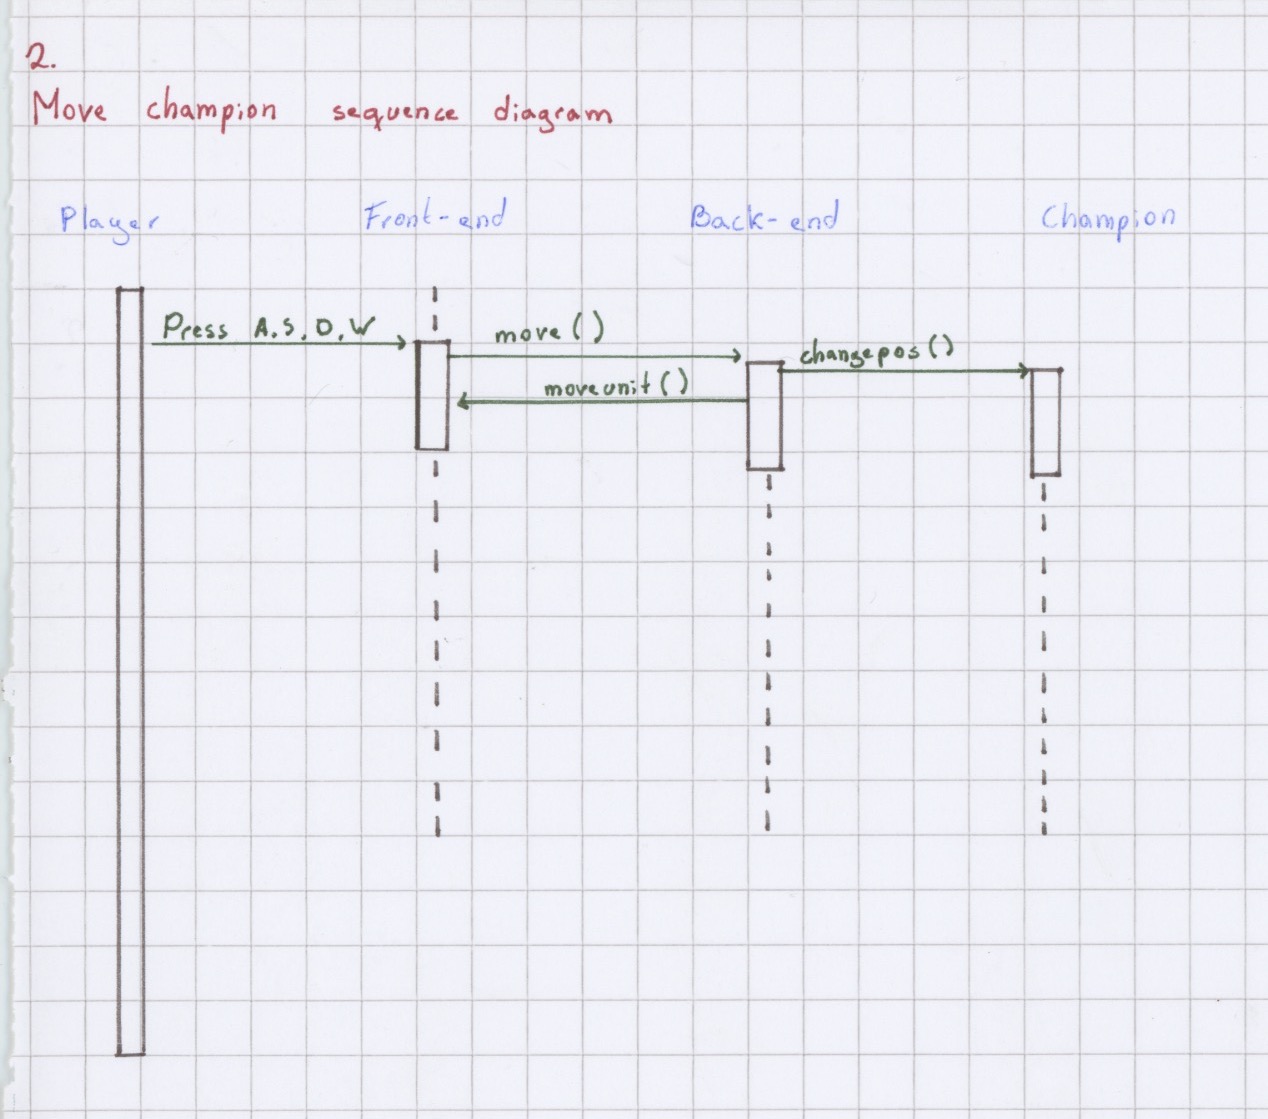 2.
Move champion sequence diagram
Player Front-end Back-end Champion
Press A.S.D.W
move()
changepos()
moveunit()